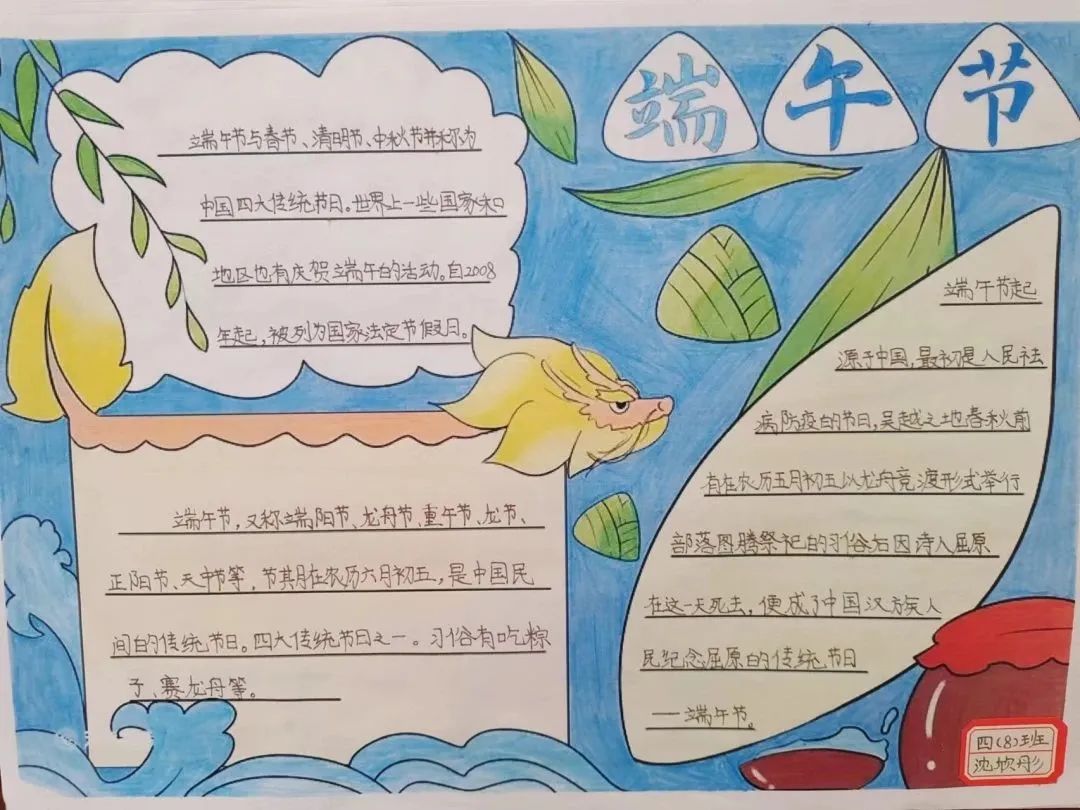 端午节
端午节与春节、清明节、中秋节并称为
中国四大传统节日。世界上一些国家和
地区也有庆贺端午的活动。自2008
年起,被列为国家法定节假日。
端午节,又称端阳节、龙舟节、重午节、龙节、
正阳节、天中节等,节期在农历六月初五,是中国民
间的传统节日。四大传统节日之一。习俗有吃粽
子、赛龙舟等。
端午节起
源于中国,最初是人民祛
病防疫的节日,吴越之地春秋前
有在农历五月初五以龙舟竞渡形式举行
部落图腾祭祀的习俗后因诗人屈原
在这一天死去,便成了中国汉族人
民纪念屈原的传统节日
——端午节。
四(8)班
沈
彤